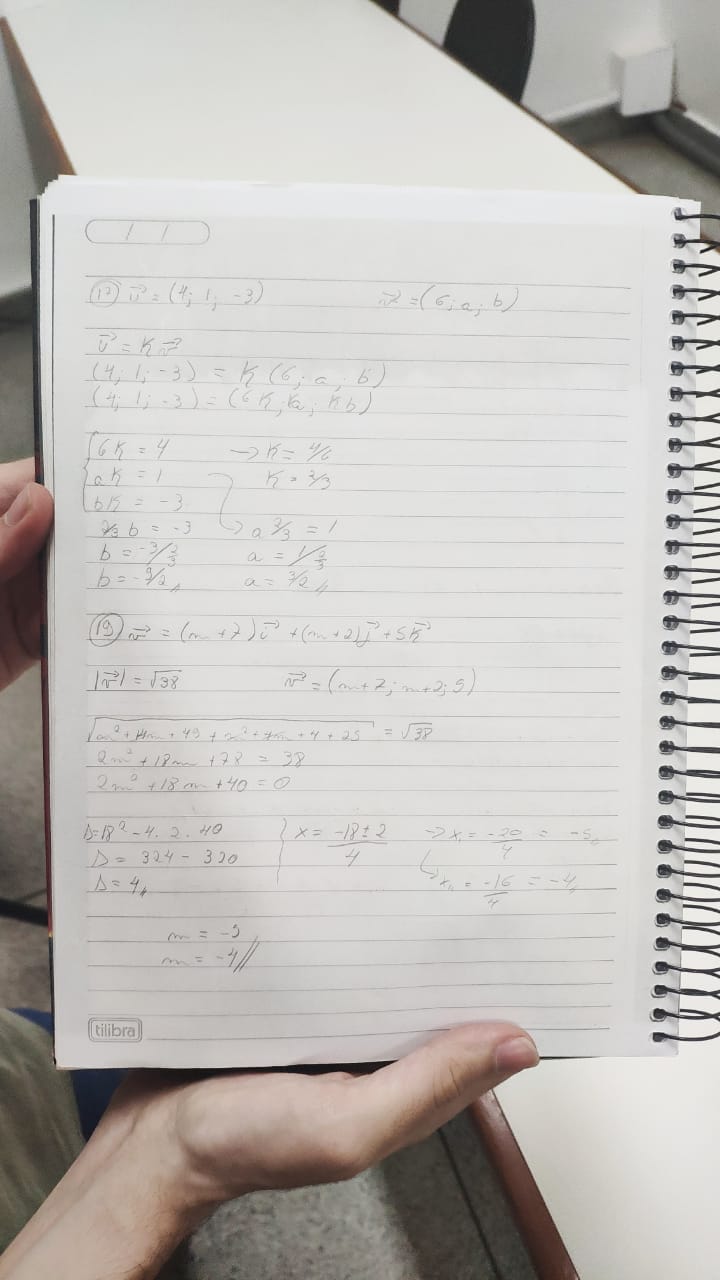 / /
17) u⃗ = (4; 1; -3) v⃗ = (6; a; b)
u⃗ = K v⃗
(4; 1; -3) = K (6; a; b)
(4; 1; -3) = (6K; Ka; Kb)
6K = 4 → K = 4/6
aK = 1 K = 2/3
bK = -3
2/3 b = -3 → a 2/3 = 1
b = -3/2/3 a = 1/2/3
b = -9/2 // a = 3/2 //
19) v⃗ = (m+7)i⃗ + (m+2)j⃗ + 5k⃗
|v⃗| = √38 v⃗ = (m+7; m+2; 5)
√m² + 14m + 49 + m² + 4m + 4 + 25 = √38
2m² + 18m + 78 = 38
2m² + 18m + 40 = 0
Δ = 18² - 4 . 2 . 40 x = -18 ± 2 / 4 → x₁ = -20/4 = -5
Δ = 324 - 320
Δ = 4 // x₁₁ = -16/4 = -4 //
m = -5
m = -4 //
tilibra